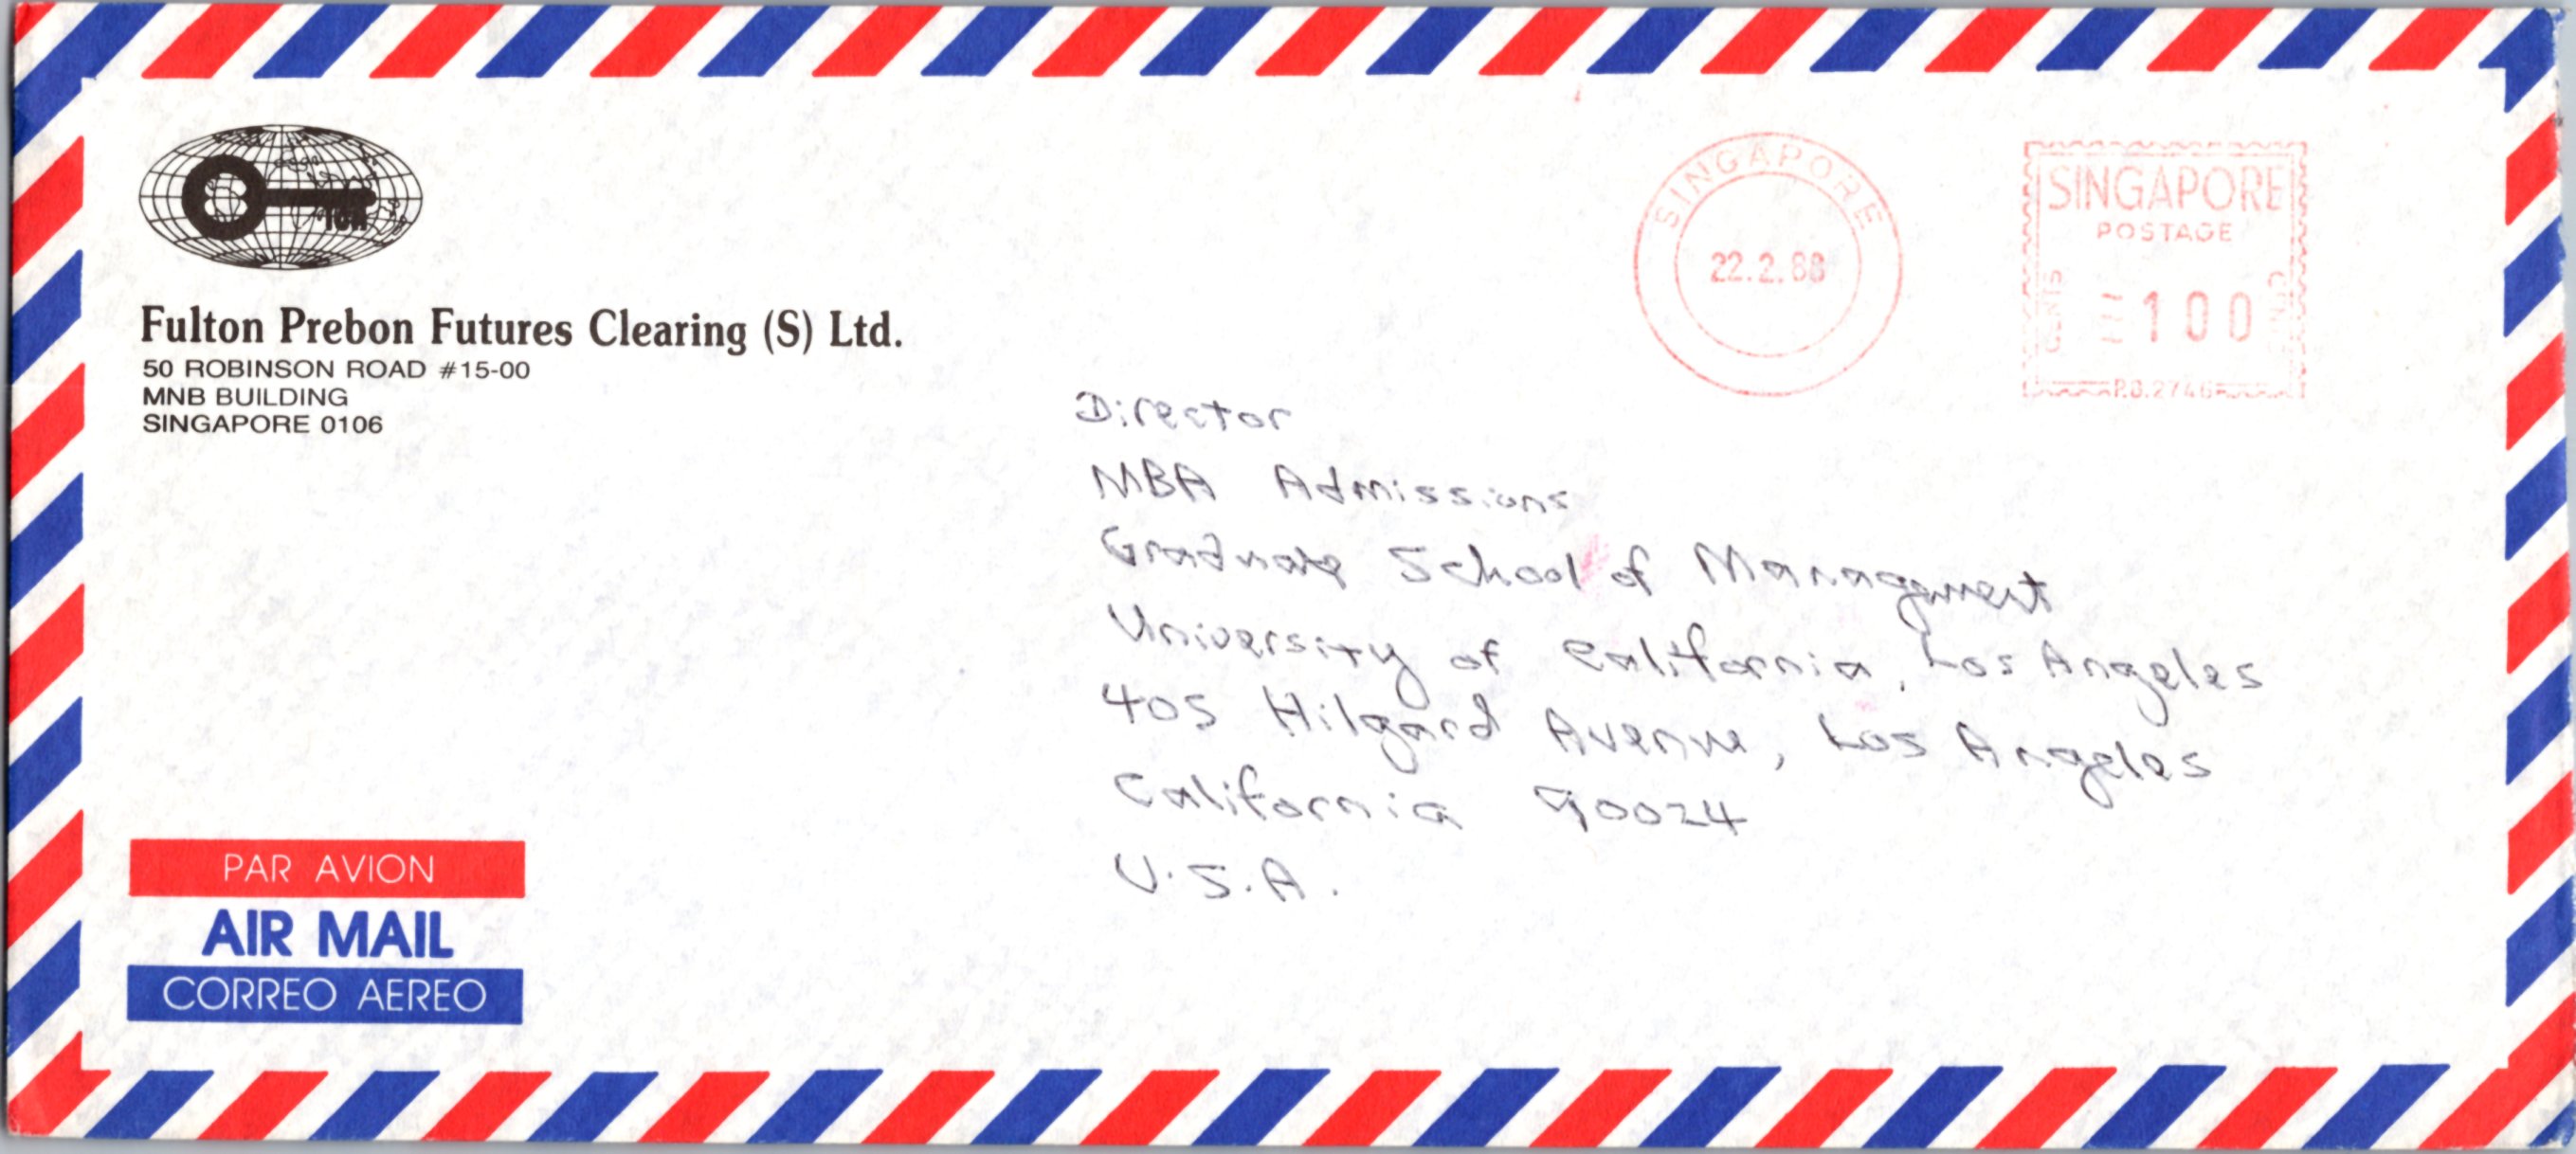 Fulton Prebon Futures Clearing (S) Ltd.
50 ROBINSON ROAD #15-00
MNB BUILDING
SINGAPORE 0106
SINGAPORE
22.2.88
SINGAPORE
POSTAGE
CENTS
100
P.B.2746
Director
MBA Admissions
Graduate School of Management
University of California, Los Angeles
405 Hilgard Avenue, Los Angeles
California 90024
U.S.A.
PAR AVION
AIR MAIL
CORREO AEREO